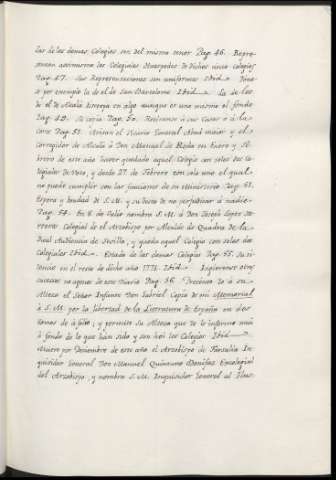 las de los demas Colegios son del mismo tenor Pag. 46. Repre-
sentan asimismo los Colegiales Huespedes de dichos cinco Colegios
Pag. 47. Sus Representaciones son uniformes Ibid. Pone-
se por exemplo la de el de San Bartolomé Ibid. La de los
de el de Alcalá discrepa en algo aunque es uno mismo el fondo
Pag. 49. Su copia Pag. 50. Retiranse à sus Casas ò à la
Corte Pag. 51. Avisan el Vicario General Abad mayor y el
Corregidor de Alcalá à Don Manuel de Roda en Enero y Fe-
brero de este año haver quedado aquel Colegio con solos dos Co-
legiales de Voto, y desde 27. de Febrero con solo uno el qual
no puede cumplir con las funciones de su Ministerio Pag. 53.
Espera y bondad de S. M. y su deseo de no perjudicar à nadie
Pag. 54. En 8. de Julio nombra S. M. à Don Joseph Lopez He-
rreros Colegial de el Arzobispo por Alcalde de Quadra de la
Real Audiencia de Sevilla, y queda aquel Colegio con solos dos
Colegiales Ibid. Estado de los demas Colegios Pag. 55. Su si-
lencio en el resto de dicho año 1772. Ibid. Refierense otros
sucesos no agenos de este Diario Pag. 56. Presento Yo à su
Alteza el Señor Infante Don Gabriel Copia de mi Memorial
à S. M. por la libertad de la Literatura de España en dos
tomos de à folio, y permitió Su Alteza que Yo le informe mas
à fondo de lo que han sido y son hoi los Colegios Ibid.
Muere por Deciembre de este año el Arzobispo de Farsalia In-
quisidor General Don Manuel Quintano Bonifaz Excolegial
del Arzobispo, y nombra S. M. Inquisidor General al Illus-